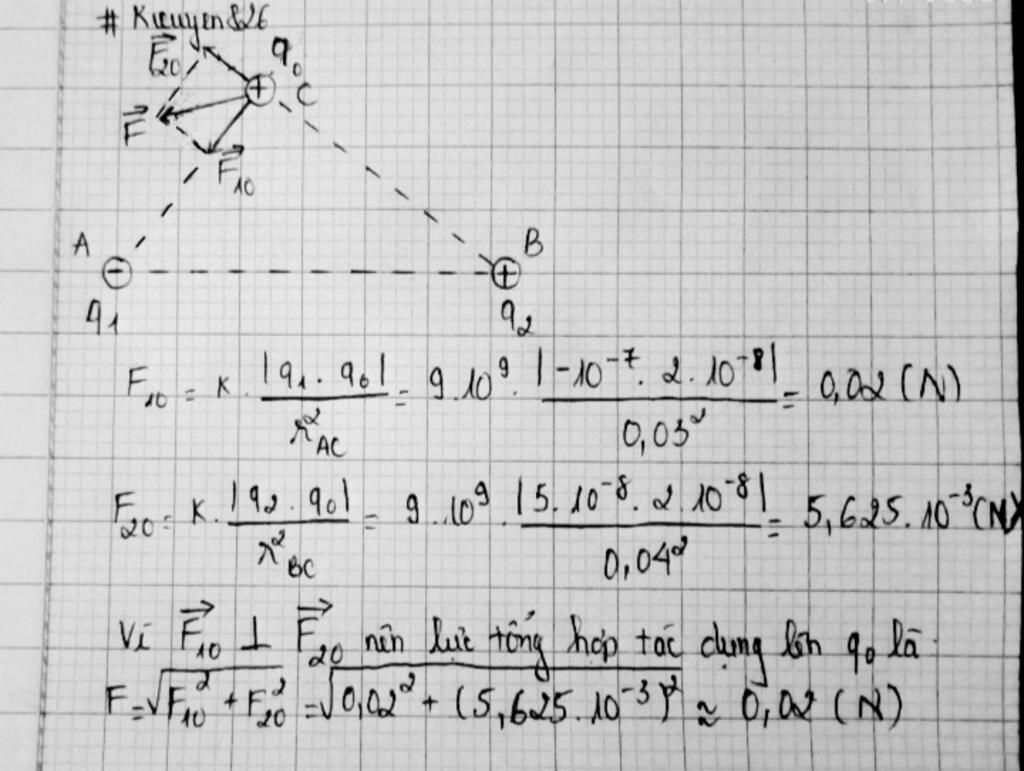 # Kieuyen826
F₂₀ q₀
C
F
F₁₀
A B
q₁ q₂
F₁₀ = K . |q₁ . q₀| / r²AC = 9.10⁹ . |-10⁻⁷ . 2 . 10⁻⁸| / 0,03² = 0,02 (N)
F₂₀ = K . |q₂ . q₀| / r²BC = 9.10⁹ . |5.10⁻⁸ . 2 10⁻⁸| / 0,04² = 5,625.10⁻³ (N)
Vì F₁₀ ⊥ F₂₀ nên lực tổng hợp tác dụng lên q₀ là
F = √F₁₀² + F₂₀² = √0,02² + (5,625.10⁻³)² ≈ 0,02 (N)